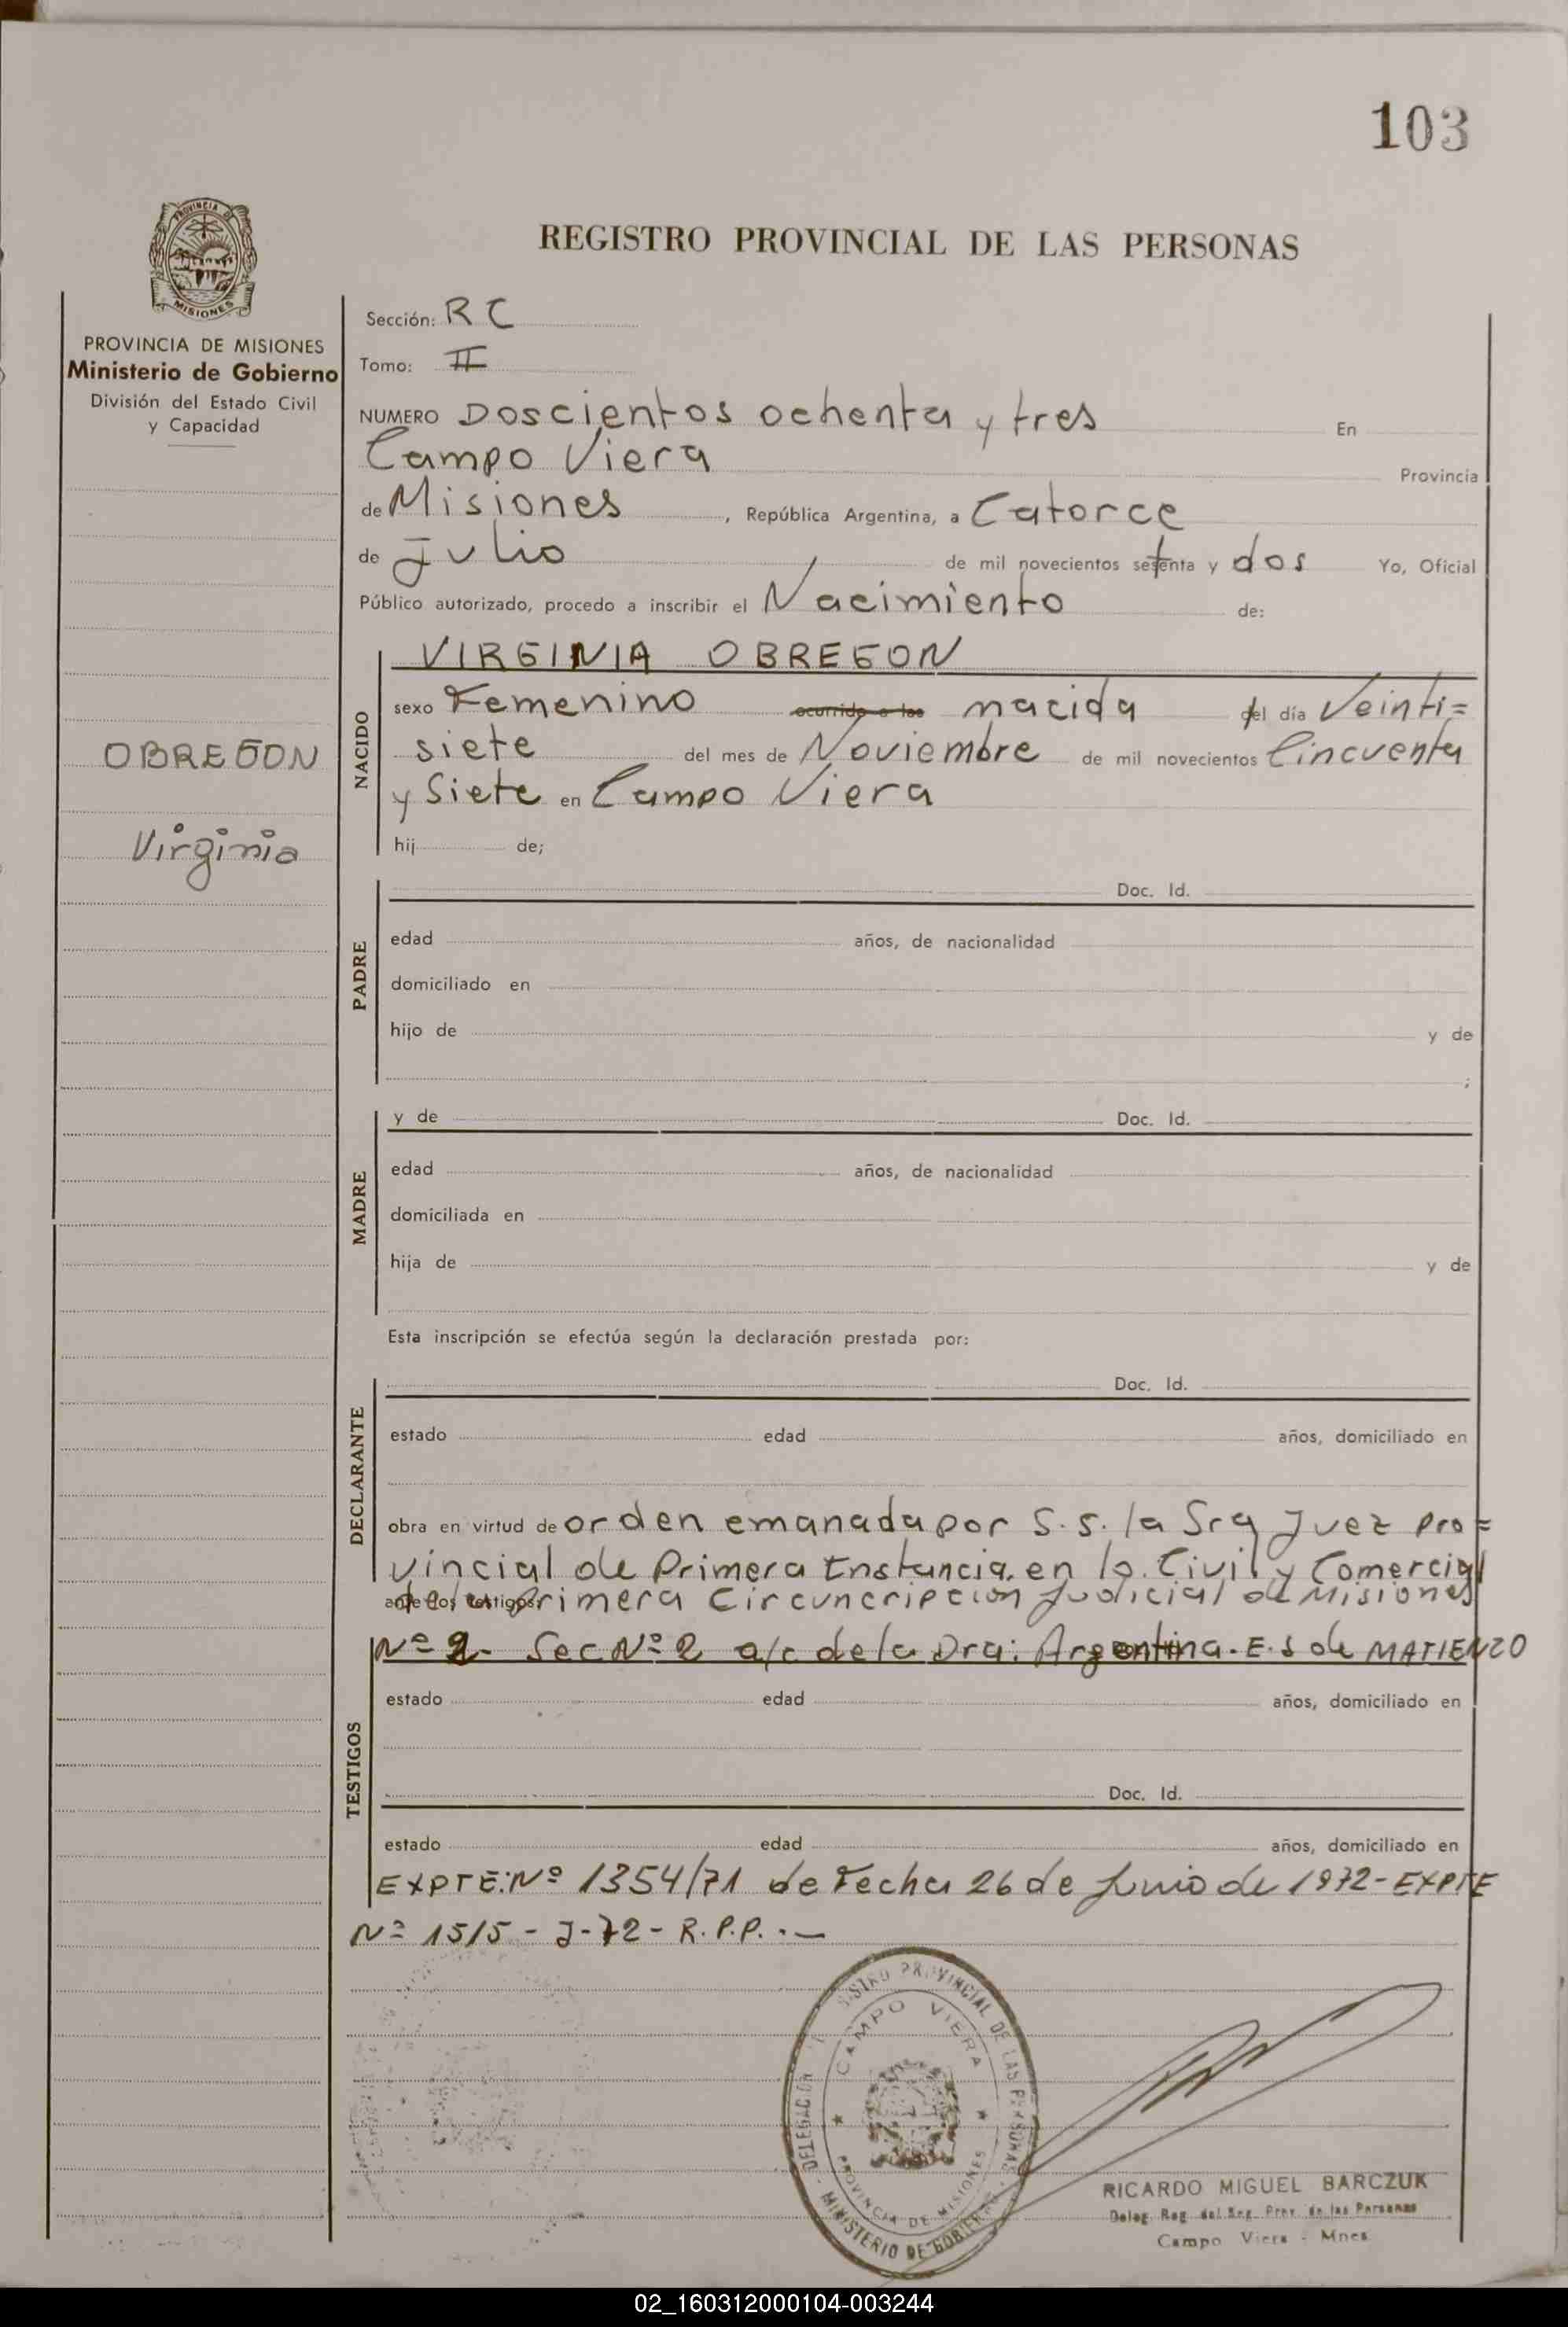 103
PROVINCIA DE
MISIONES
REGISTRO PROVINCIAL DE LAS PERSONAS
PROVINCIA DE MISIONES
Ministerio de Gobierno
División del Estado Civil
y Capacidad
OBREGON
Virginia
Sección: RC
Tomo: II
NUMERO Doscientos ochenta y tres En
Campo Viera Provincia
de Misiones, República Argentina, a Catorce
de Julio de mil novecientos setenta y dos Yo, Oficial
Público autorizado, procedo a inscribir el Nacimiento de:
NACIDO
VIRGINIA OBREGON
sexo Femenino ocurrido a las nacida del día Veinti=
siete del mes de Noviembre de mil novecientos Cincuenta
y Siete en Campo Viera
hij de;
PADRE
Doc. Id.
edad años, de nacionalidad
domiciliado en
hijo de y de
;
MADRE
y de Doc. Id.
edad años, de nacionalidad
domiciliada en
hija de y de
Esta inscripción se efectúa según la declaración prestada por:
DECLARANTE
Doc. Id.
estado edad años, domiciliado en
obra en virtud de orden emanada por S.S. la Sra Juez Pro=
vincial de Primera Instancia en lo Civil y Comercial
ante los testigos: Primera Circuncripcion Judicial de Misiones
Nº 2- Sec Nº 2 a/c de la Dra: Argentina. E.S de MATIENZO
TESTIGOS
estado edad años, domiciliado en
Doc. Id.
estado edad años, domiciliado en
EXPTE: Nº 1354/71 de Fecha 26 de Junio de 1972- EXPTE
Nº 1515 - J-72 - R.P.P. .-
DELEGACION
REGISTRO PROVINCIAL DE LAS PERSONAS
CAMPO VIERA
PROVINCIA DE MISIONES
MINISTERIO DE GOBIERNO
RICARDO MIGUEL BARCZUK
Deleg. Reg. del Reg. Prov. de las Personas
Campo Viera - Mnes
02_160312000104-003244